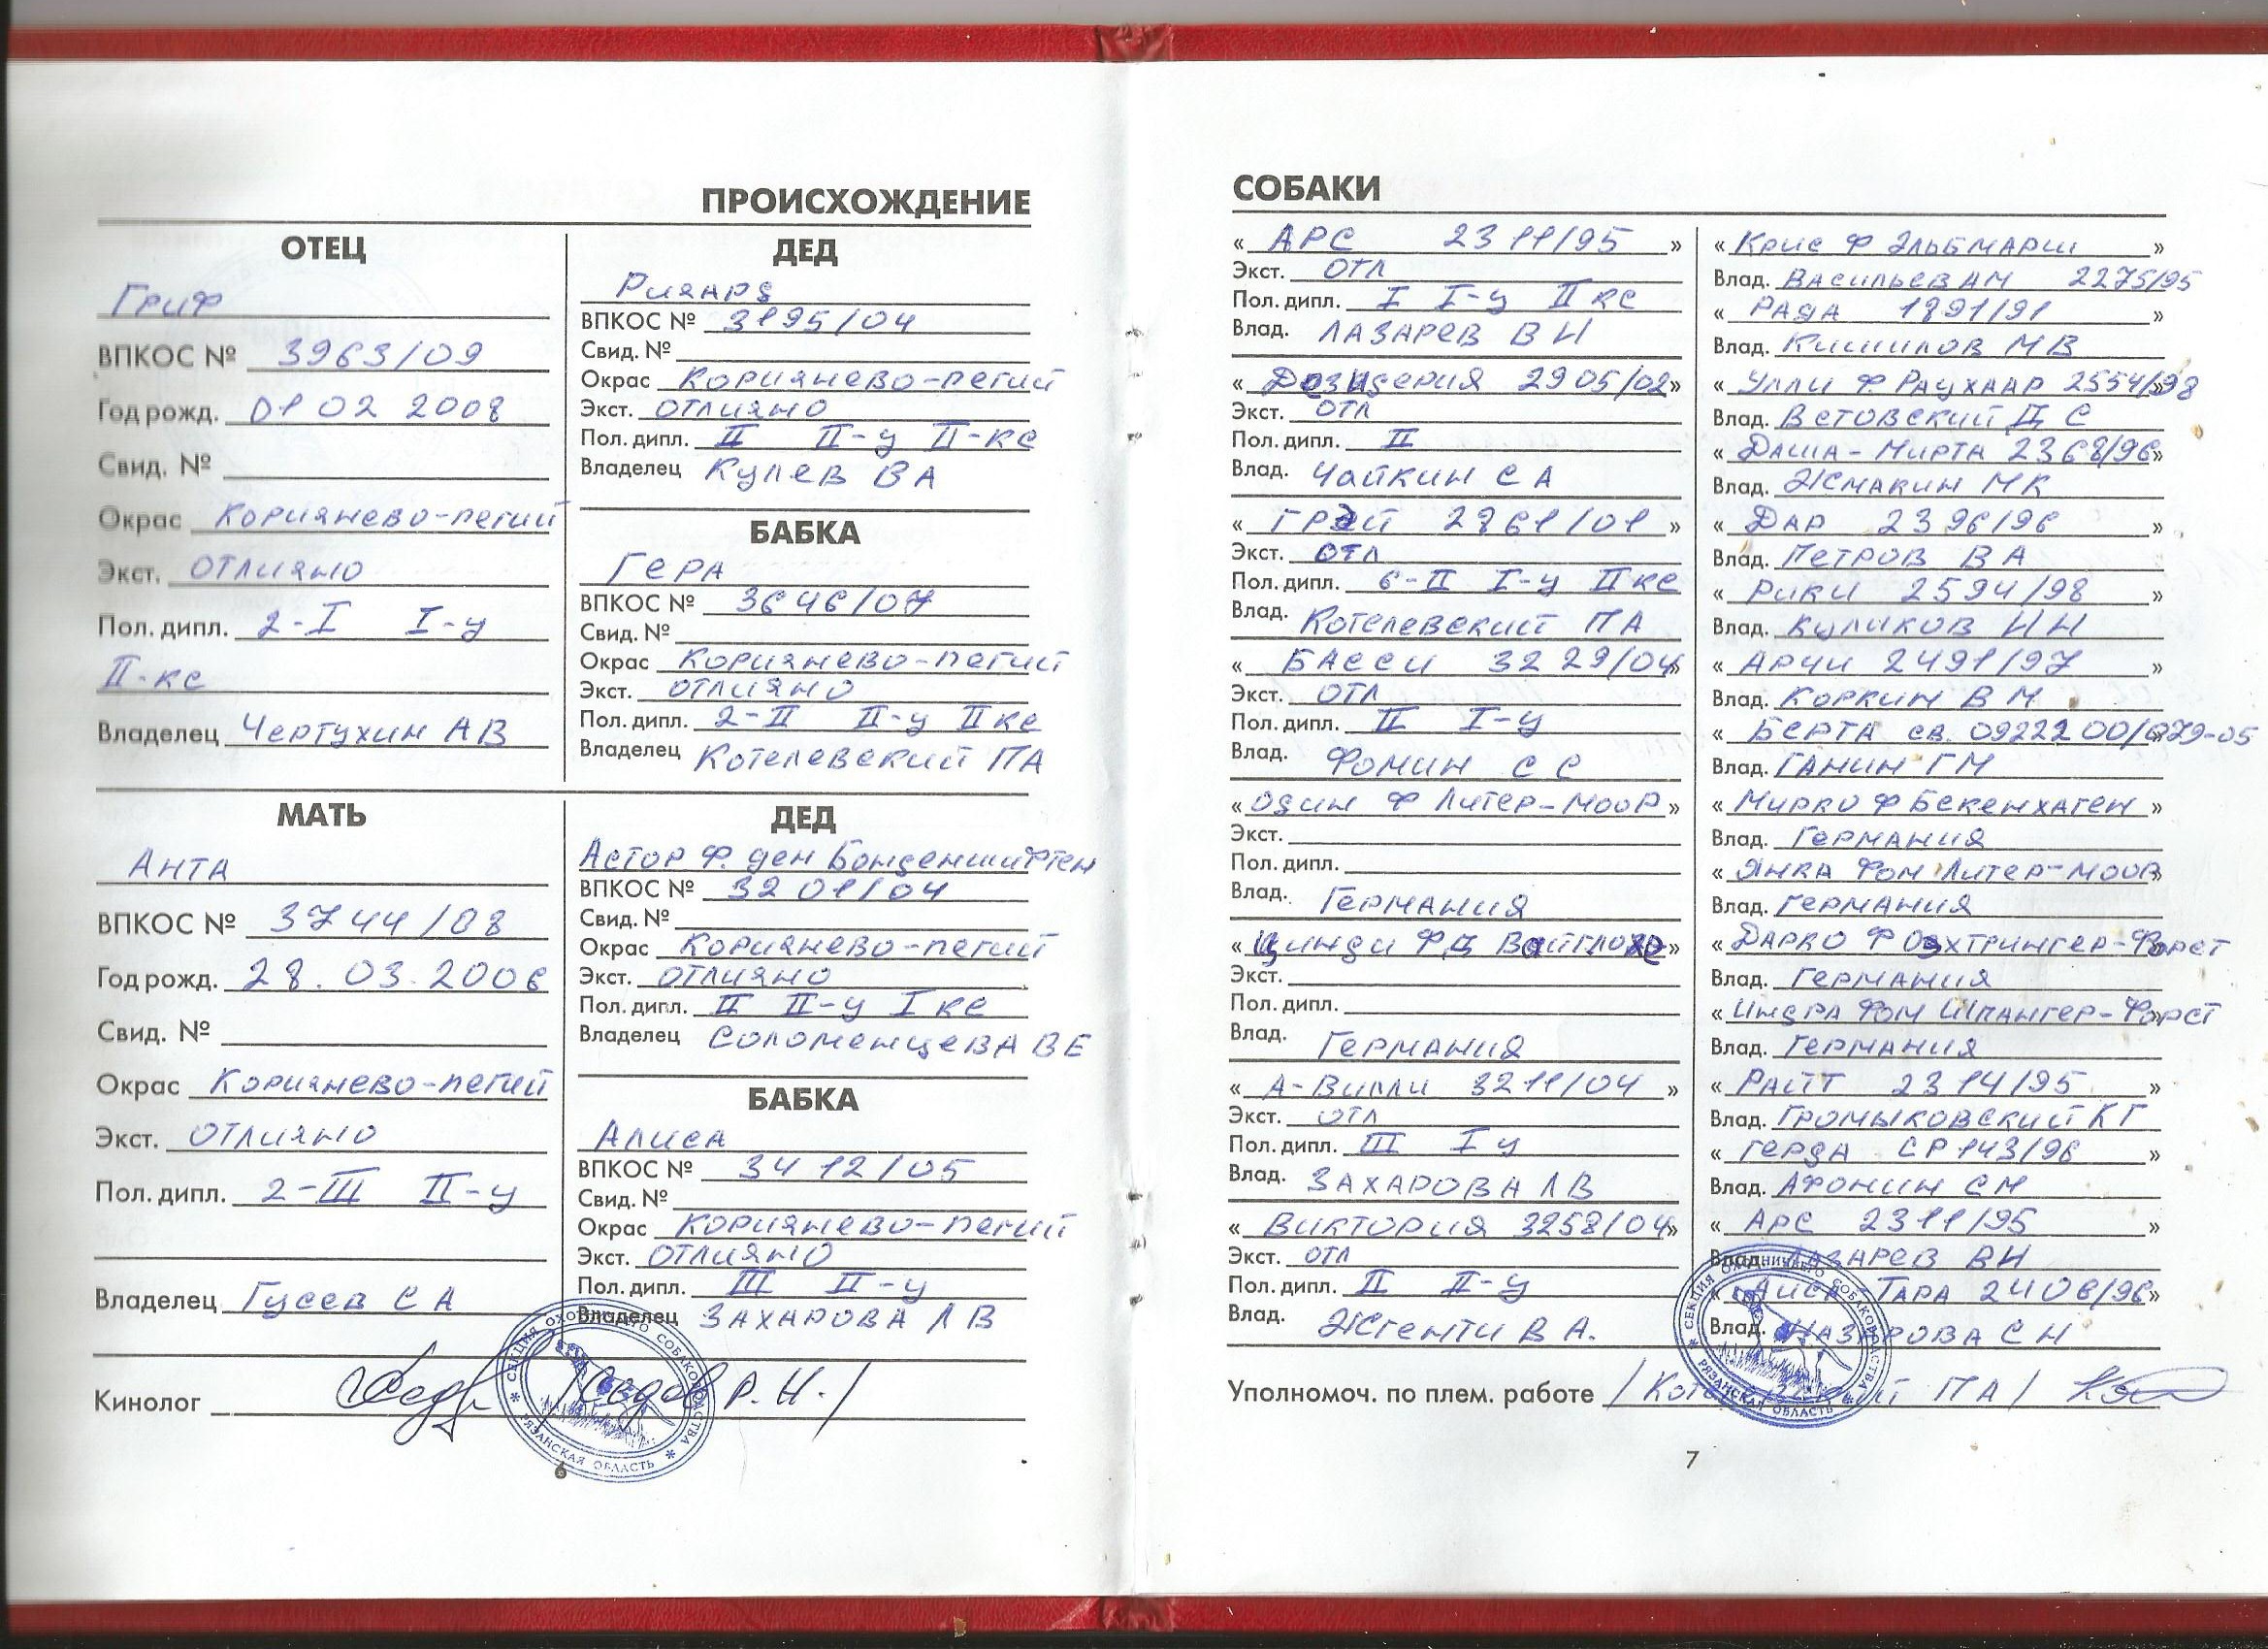 ПРОИСХОЖДЕНИЕ
ОТЕЦ
Гриф
ВПКОС № 3963/09
Год рожд. 01 02 2008
Свид. №
Окрас Коричнево-пегий
Экст. отлично
Пол. дипл. 2-I I-у
II-кс
Владелец Чертухин АВ
ДЕД
Ричард
ВПКОС № 3195/04
Свид. №
Окрас Коричнево-пегий
Экст. отлично
Пол. дипл. II II-у II-кс
Владелец Кулев ВА
БАБКА
Гера
ВПКОС № 3646/07
Свид. №
Окрас Коричнево-пегий
Экст. отлично
Пол. дипл. 2-II II-у II кс
Владелец Котелевский ПА
МАТЬ
Анта
ВПКОС № 3744/08
Год рожд. 28.03.2006
Свид. №
Окрас Коричнево-пегий
Экст. отлично
Пол. дипл. 2-III II-у
Владелец Гусев СА
ДЕД
Астор Ф. ден Бонденшифтен
ВПКОС № 3201/04
Свид. №
Окрас Коричнево-пегий
Экст. отлично
Пол. дипл. II II-у I кс
Владелец Соломенцева ВЕ
БАБКА
Алиса
ВПКОС № 3412/05
Свид. №
Окрас Коричнево-пегий
Экст. отлично
Пол. дипл. III II-у
Владелец Захарова ЛВ
Кинолог Р.Н./
СЕКЦИЯ ОХОТНИЧЬЕГО СОБАКОВОДСТВА * РЯЗАНСКАЯ ОБЛАСТЬ *
6
СОБАКИ
« Арс 2311/95 »
Экст. отл
Пол. дипл. I I-у II кс
Влад. Лазарев ВН
« Дезидерия 2905/02»
Экст. отл
Пол. дипл. II
Влад. Чайкин СА
« Грэй 2861/01 »
Экст. отл
Пол. дипл. 6-II I-у II кс
Влад. Котелевский ПА
« Басси 3229/04»
Экст. отл
Пол. дипл. II I-у
Влад. Фомин СС
« Один Ф Литер-Моор »
Экст.
Пол. дипл.
Влад. Германия
« Цинди Ф.д »
Экст.
Пол. дипл.
Влад. Германия
« А-Вилли 3211/04 »
Экст. отл
Пол. дипл. III I у
Влад. Захарова ЛВ
« Виктория 3258/04»
Экст. отл
Пол. дипл. II II-у
Влад. Жгенти ВА.
« Крис Ф Эльбмарш »
Влад. Васильев АМ 2275/95
« Рада 1891/91 »
Влад. Кишилов МВ
« Улли Ф Раухаар 2554/98
Влад. Встовский Д С
« Даша-Мирта 2368/96»
Влад. Жмакин МК
« Дар 2396/96 »
Влад. Петров ВА
« Рики 2594/98 »
Влад. Куликов НН
« Арчи 2491/97 »
Влад. Коркин ВМ
« Берта св. 0922200/079-05
Влад. Ганин ГМ
« Мирко Ф Бекенхаген »
Влад. Германия
« Янка Фом Литер-Моор»
Влад. Германия
« Дарко Ф Охтрингер-Форст
Влад. Германия
« Индра Фом Шпангер-Форст
Влад. Германия
« Райт 2314/95 »
Влад. Громыковский КГ
« Герда СР 143/96 »
Влад. Афонин СМ
« Арс 2311/95 »
Влад. Лазарев ВН
« Тара 2406/96»
Влад. Назарова СН
Уполномоч. по плем. работе /Котелевский ПА/
СЕКЦИЯ ОХОТНИЧЬЕГО СОБАКОВОДСТВА * РЯЗАНСКАЯ ОБЛАСТЬ *
7